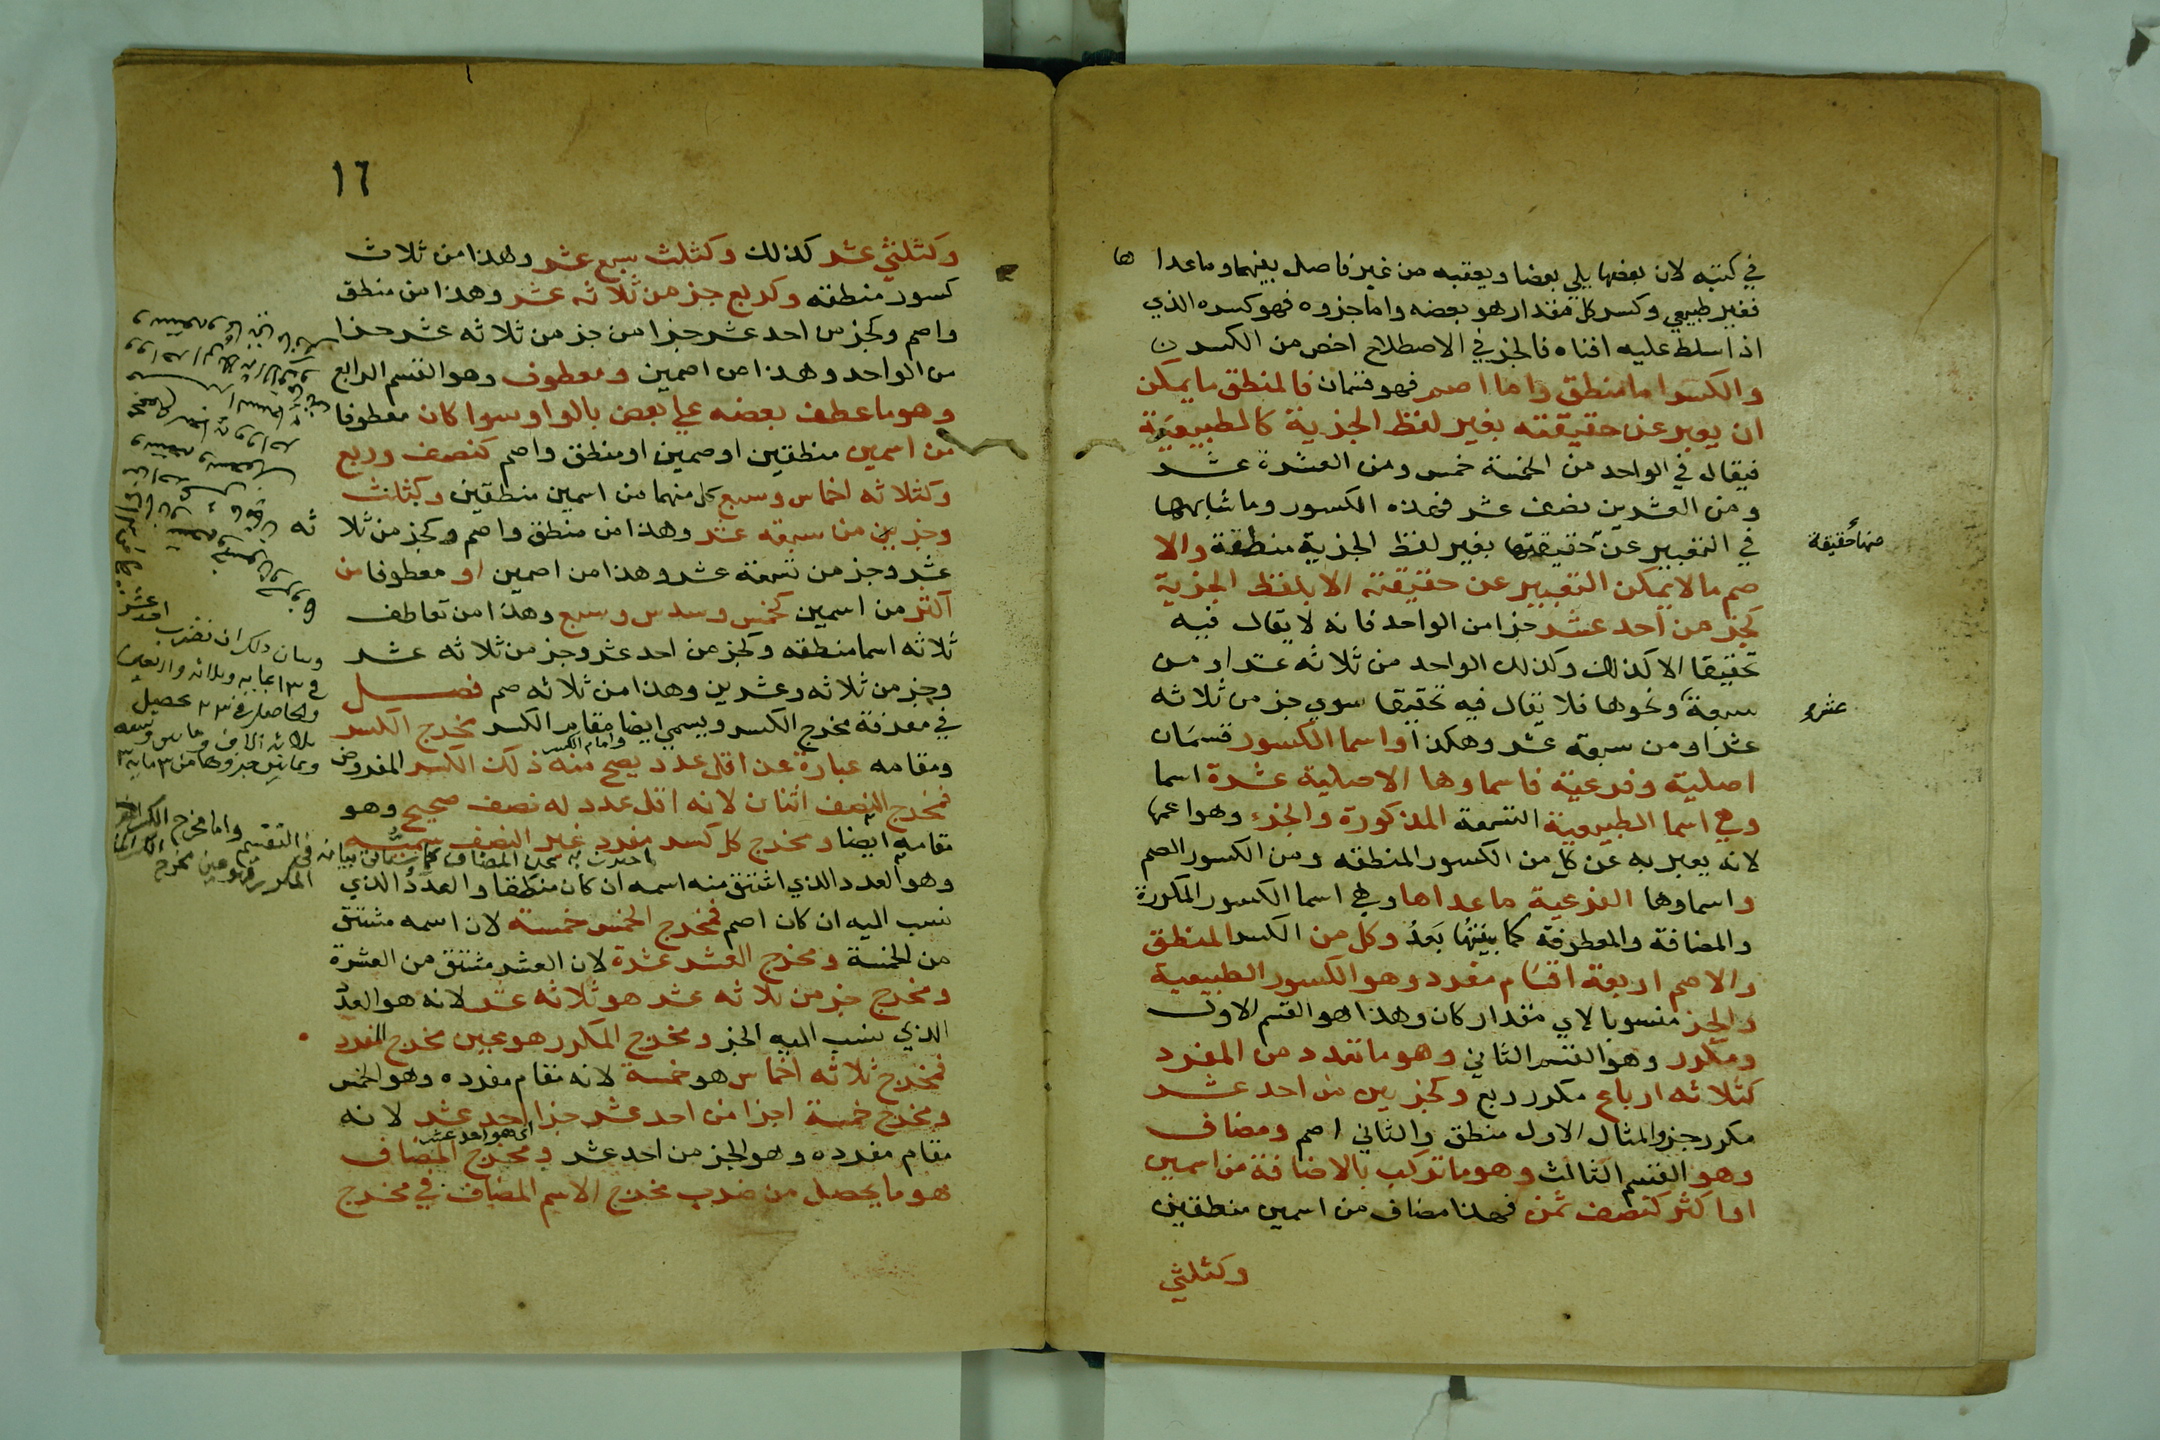 في كتبه لان بعضها يلي بعضا ويعقبه من غير فاصل بينهما وما عداها
فغير طبيعي وكسر كل مقدار هو بعضه واما جزوه فهو كسره الذي
اذا سلط عليه افناه فالجز في الاصطلاح اخص من الكسر
والكسر اما منطق واما اصم فهو قسمان فالمنطق ما يمكن
ان يعبر عن حقيقته بغير لفظ الجزية كالطبيعية
فيقال في الواحد من الخمسة خمس ومن العشرة عشر
ومن العشرين نصف عشر فهذه الكسور وما شابهها
في التعبير عن حقيقتها بغير لفظ الجزية منطقة والا
منها حقيقة
صم ما لا يمكن التعبير عن حقيقته الا بلفظ الجزية
كجز من احد عشر جزا من الواحد فانه لا يقال فيه
تحقيقا الا كذلك وكذلك الواحد من ثلاثه عشر او من
سبعة ونحوها فلا يقال فيه تحقيقا سوي جز من ثلاثه
عشر
عشر او من سبعة عشر وهكذا واسما الكسور قسمان
اصلية وفرعية فاسماوها الاصلية عشرة اسما
وهي اسما الطبيعية التسعة المذكورة والجزء وهو اعمها
لانه يعبر به عن كل من الكسور المنطقه ومن الكسور الصم
واسماوها الفرعية ما عداها وهي اسما الكسور المكررة
والمضافة والمعطوفة كما بينتها بعد وكل من الكسر المنطق
والاصم اربعة اقسام مفرد وهو الكسور الطبيعية
والجز منسوبا لاي مقدار كان وهذا هو القسم الاول
ومكرر وهو القسم الثاني وهو ما تعدد من المفرد
كثلاثه ارباع مكرر ربع وكجزين من احد عشر
مكرر جز والمثال الاول منطق والثاني اصم ومضاف
وهو القسم الثالث وهو ما تركب بالاضافة من اسمين
او اكثر كنصف ثمن فهذا مضاف من اسمين منطقين
وكثلثي
١٦
وكثلثي عشر كذلك وكثلث سبع عشر وهذا من ثلاث
كسور منطقه وكربع جز من ثلاثه عشر وهذا من منطق
واصم وكجز من احد عشر جزا من جز من ثلاثه عشر جزا
من الواحد وهذا من اصمين ومعطوف وهو القسم الرابع
وهو ما عطف بعضه علي بعض بالواو سوا كان معطوفا
من اسمين منطقين او صمين او منطق واصم كنصف وربع
وكثلاثه اخماس وسبع كل منهما من اسمين منطقين وكثلث
وجزين من سبعه عشر وهذا من منطق واصم وكجز من ثلا
ثه
عشر وجز من تسعة عشر وهذا من اصمين او معطوفا من
اكثر من اسمين كخمس وسدس وسبع وهذا من تعاطف
ثلاثه اسما منطقه وكجز من احد عشر وجز من ثلاثه عشر
وجز من ثلاثه وعشرين وهذا من ثلاثه صم فصل
في معرفة مخرج الكسر ويسمي ايضا مقام الكسر مخرج الكسر
وامام الكسر
ومقامه عبارة عن اقل عدد يصح منه ذلك الكسر المفروض
فمخرج النصف اثنان لانه اقل عدد له نصف صحيح وهو
مقامه ايضا ومخرج كل كسر مفرد غير النصف سميه
وهو العدد الذي اشتق منه اسمه ان كان منطقا والعدد الذي
نسب اليه ان كان اصم فمخرج الخمس خمسة لان اسمه مشتق
من الخمسة ومخرج العشر عشرة لان العشر مشتق من العشرة
ومخرج جز من ثلاثه عشر هو ثلاثه عشر لانه هو العدد
الذي ينسب اليه الجز ومخرج المكرر هو عين مخرج المفرد
فمخرج ثلاثه اخماس هو خمسة لانه مقام مفرده وهو الخمس
ومخرج خمسة اجزا من احد عشر جزا احد عشر لانه
اي هو احد عشر
مقام مفرده وهو الجز من احد عشر ومخرج المضاف
هو ما يحصل من ضرب مخرج الاسم المضاف في مخرج
احد عشر
وبيان ذلك ان تضرب